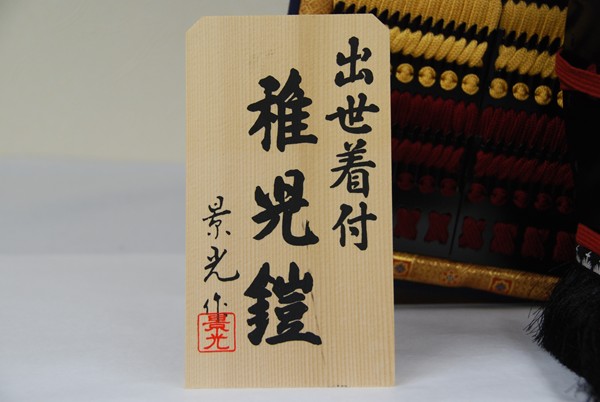 出世着付
稚児鎧
景光作
景光